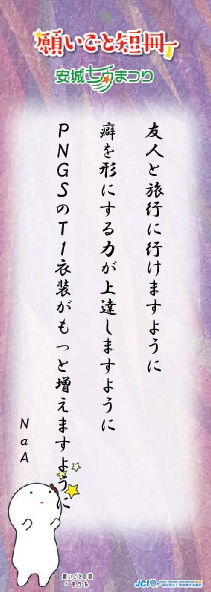 願いごと短冊
安城七夕まつり
友人と旅行に行けますように
癖を形にする力が上達しますように
PNGSのT1衣装がもっと増えますように
NaA
JCI